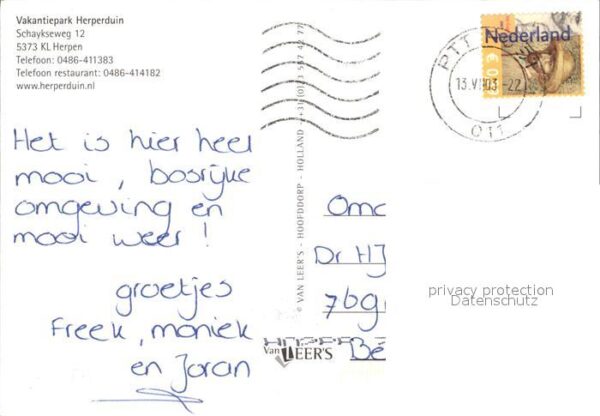 Vakantiepark Herperduin
Schaykseweg 12
5373 KL Herpen
Telefoon: 0486-411383
Telefoon restaurant: 0486-414182
www.herperduin.nl
Het is hier heel
mooi, bosrijke
omgeving en
mooi weer!
groetjes
Freek, moniek
en Joran
© VAN LEER'S - HOOFDDORP - HOLLAND
Van LEER'S
Nederland
PTT
011
Dr HJ
privacy protection
Datenschutz